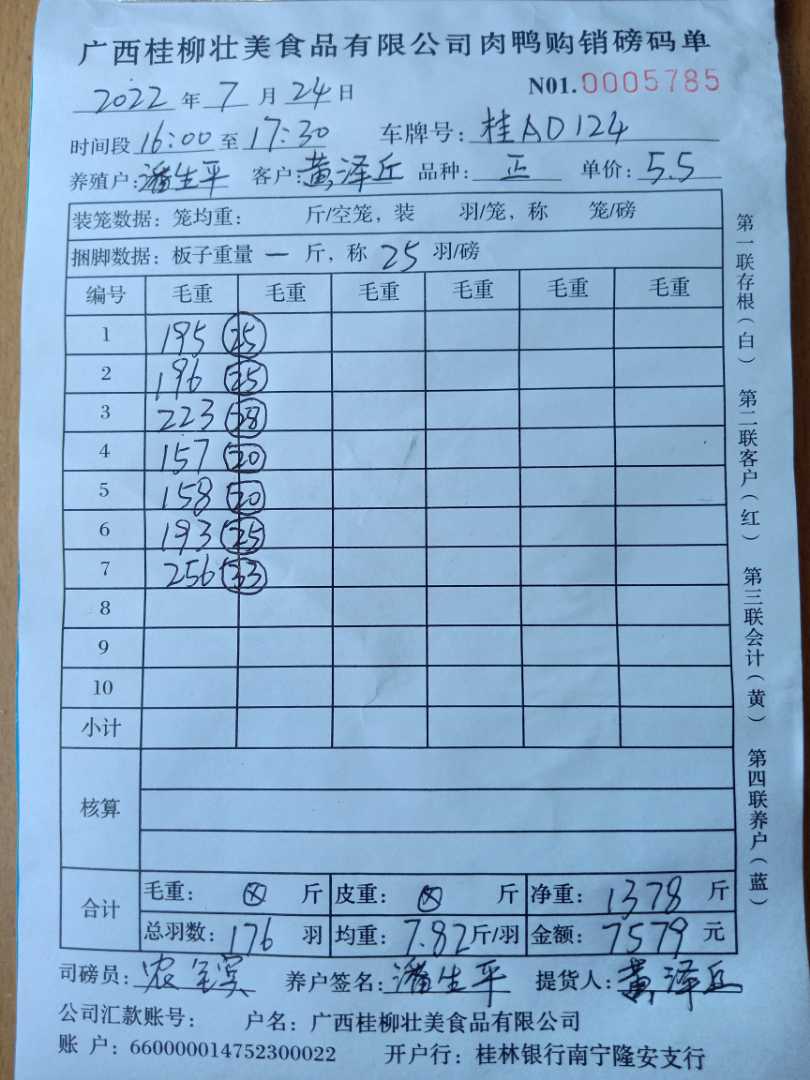 广西桂柳壮美食品有限公司肉鸭购销磅码单
2022 年 7 月 24 日 N01. 0005785
时间段 16:00 至 17:30 车牌号: 桂AD124
养殖户: 潘生平 客户: 黄泽丘 品种: 正 单价: 5.5
装笼数据: 笼均重: 斤/空笼, 装 羽/笼, 称 笼/磅
捆脚数据: 板子重量 一 斤, 称 25 羽/磅
编号 毛重 毛重 毛重 毛重 毛重 毛重
1 195 25
2 196 25
3 223 28
4 157 20
5 158 20
6 193 25
7 256 33
8
9
10
小计
核算
合计
毛重: 斤 皮重: 斤 净重: 1378 斤
总羽数: 176 羽 均重: 7.82 斤/羽 金额: 7579 元
司磅员: 养户签名: 潘生平 提货人: 黄泽丘
公司汇款账号: 户名: 广西桂柳壮美食品有限公司
账 户: 660000014752300022 开户行: 桂林银行南宁隆安支行
第一联存根(白) 第二联客户(红) 第三联会计(黄) 第四联养户(蓝)